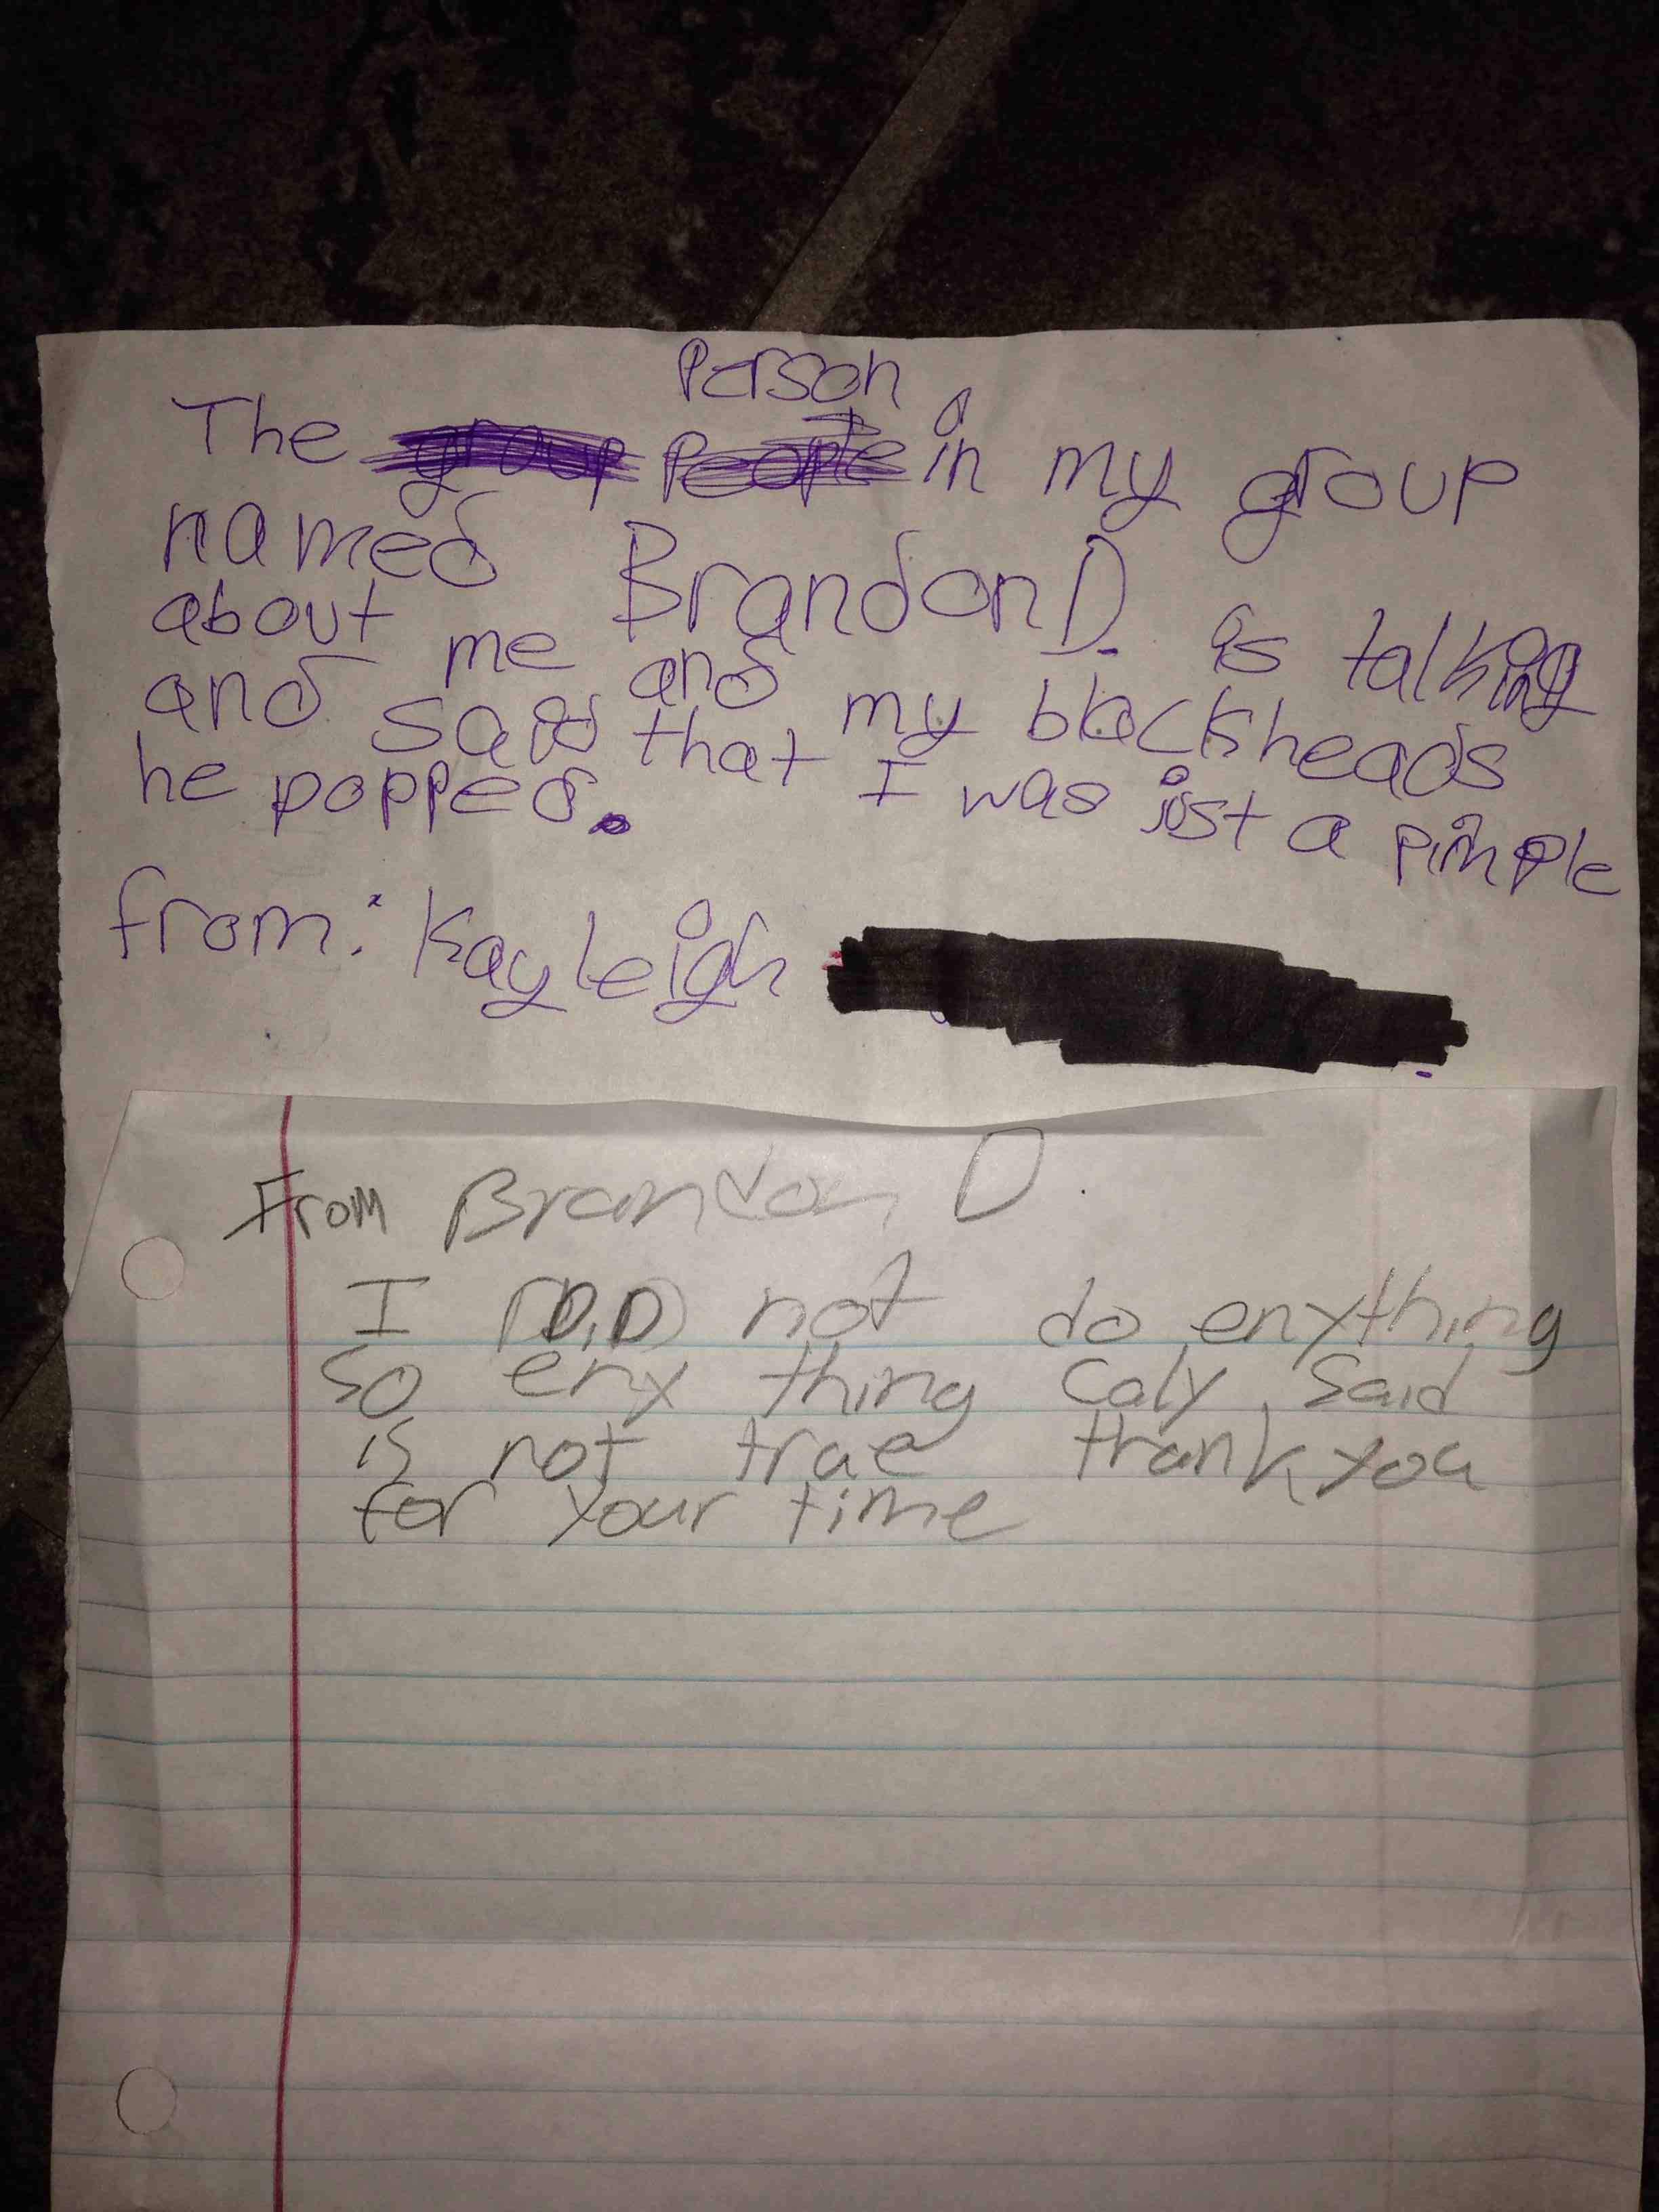 Person
The group people in my group
named Brandon D. is talking
about me and my blackheads
and said that I was jist a pimple
he popped.
from: Kayleigh
From Brandon D.
I DiD not do enything
so eny thing caly said
is not true thank you
for your time